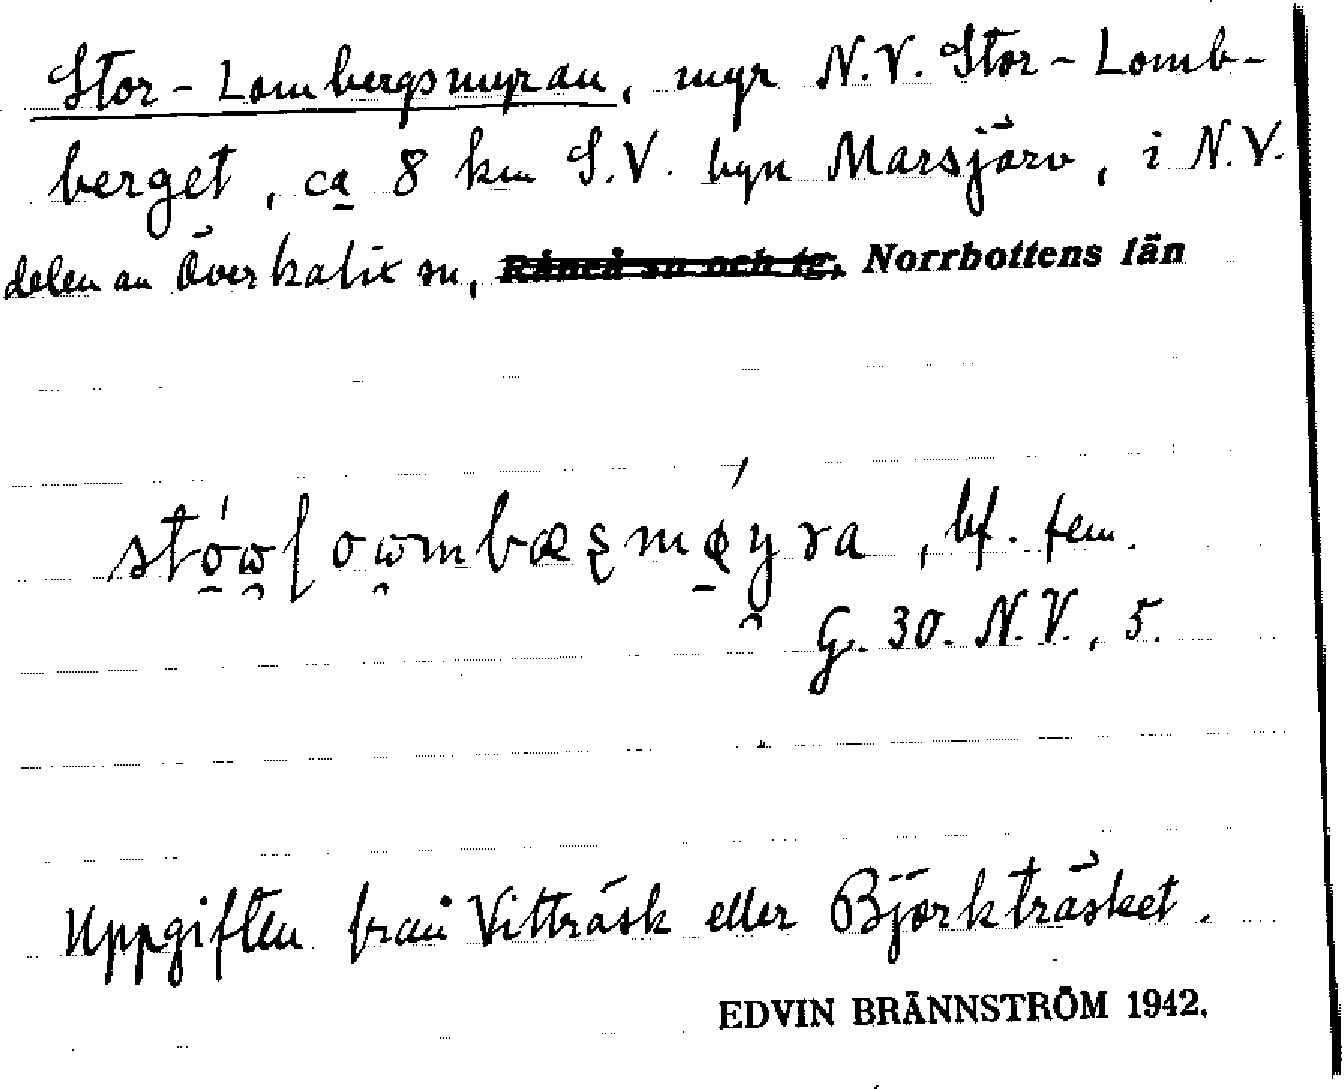 Stor-Lombergsmyran, myr N.V. Stor-Lomb-
berget, ca 8 km S.V. byn Marsjärv, i N.V.
delen av Överkalix sn, Råneå sn och tg, Norrbottens län
bf. fem.
G. 30. N.V., 5.
Uppgiften från Vitträsk eller Björkträsket.
EDVIN BRÄNNSTRÖM 1942.